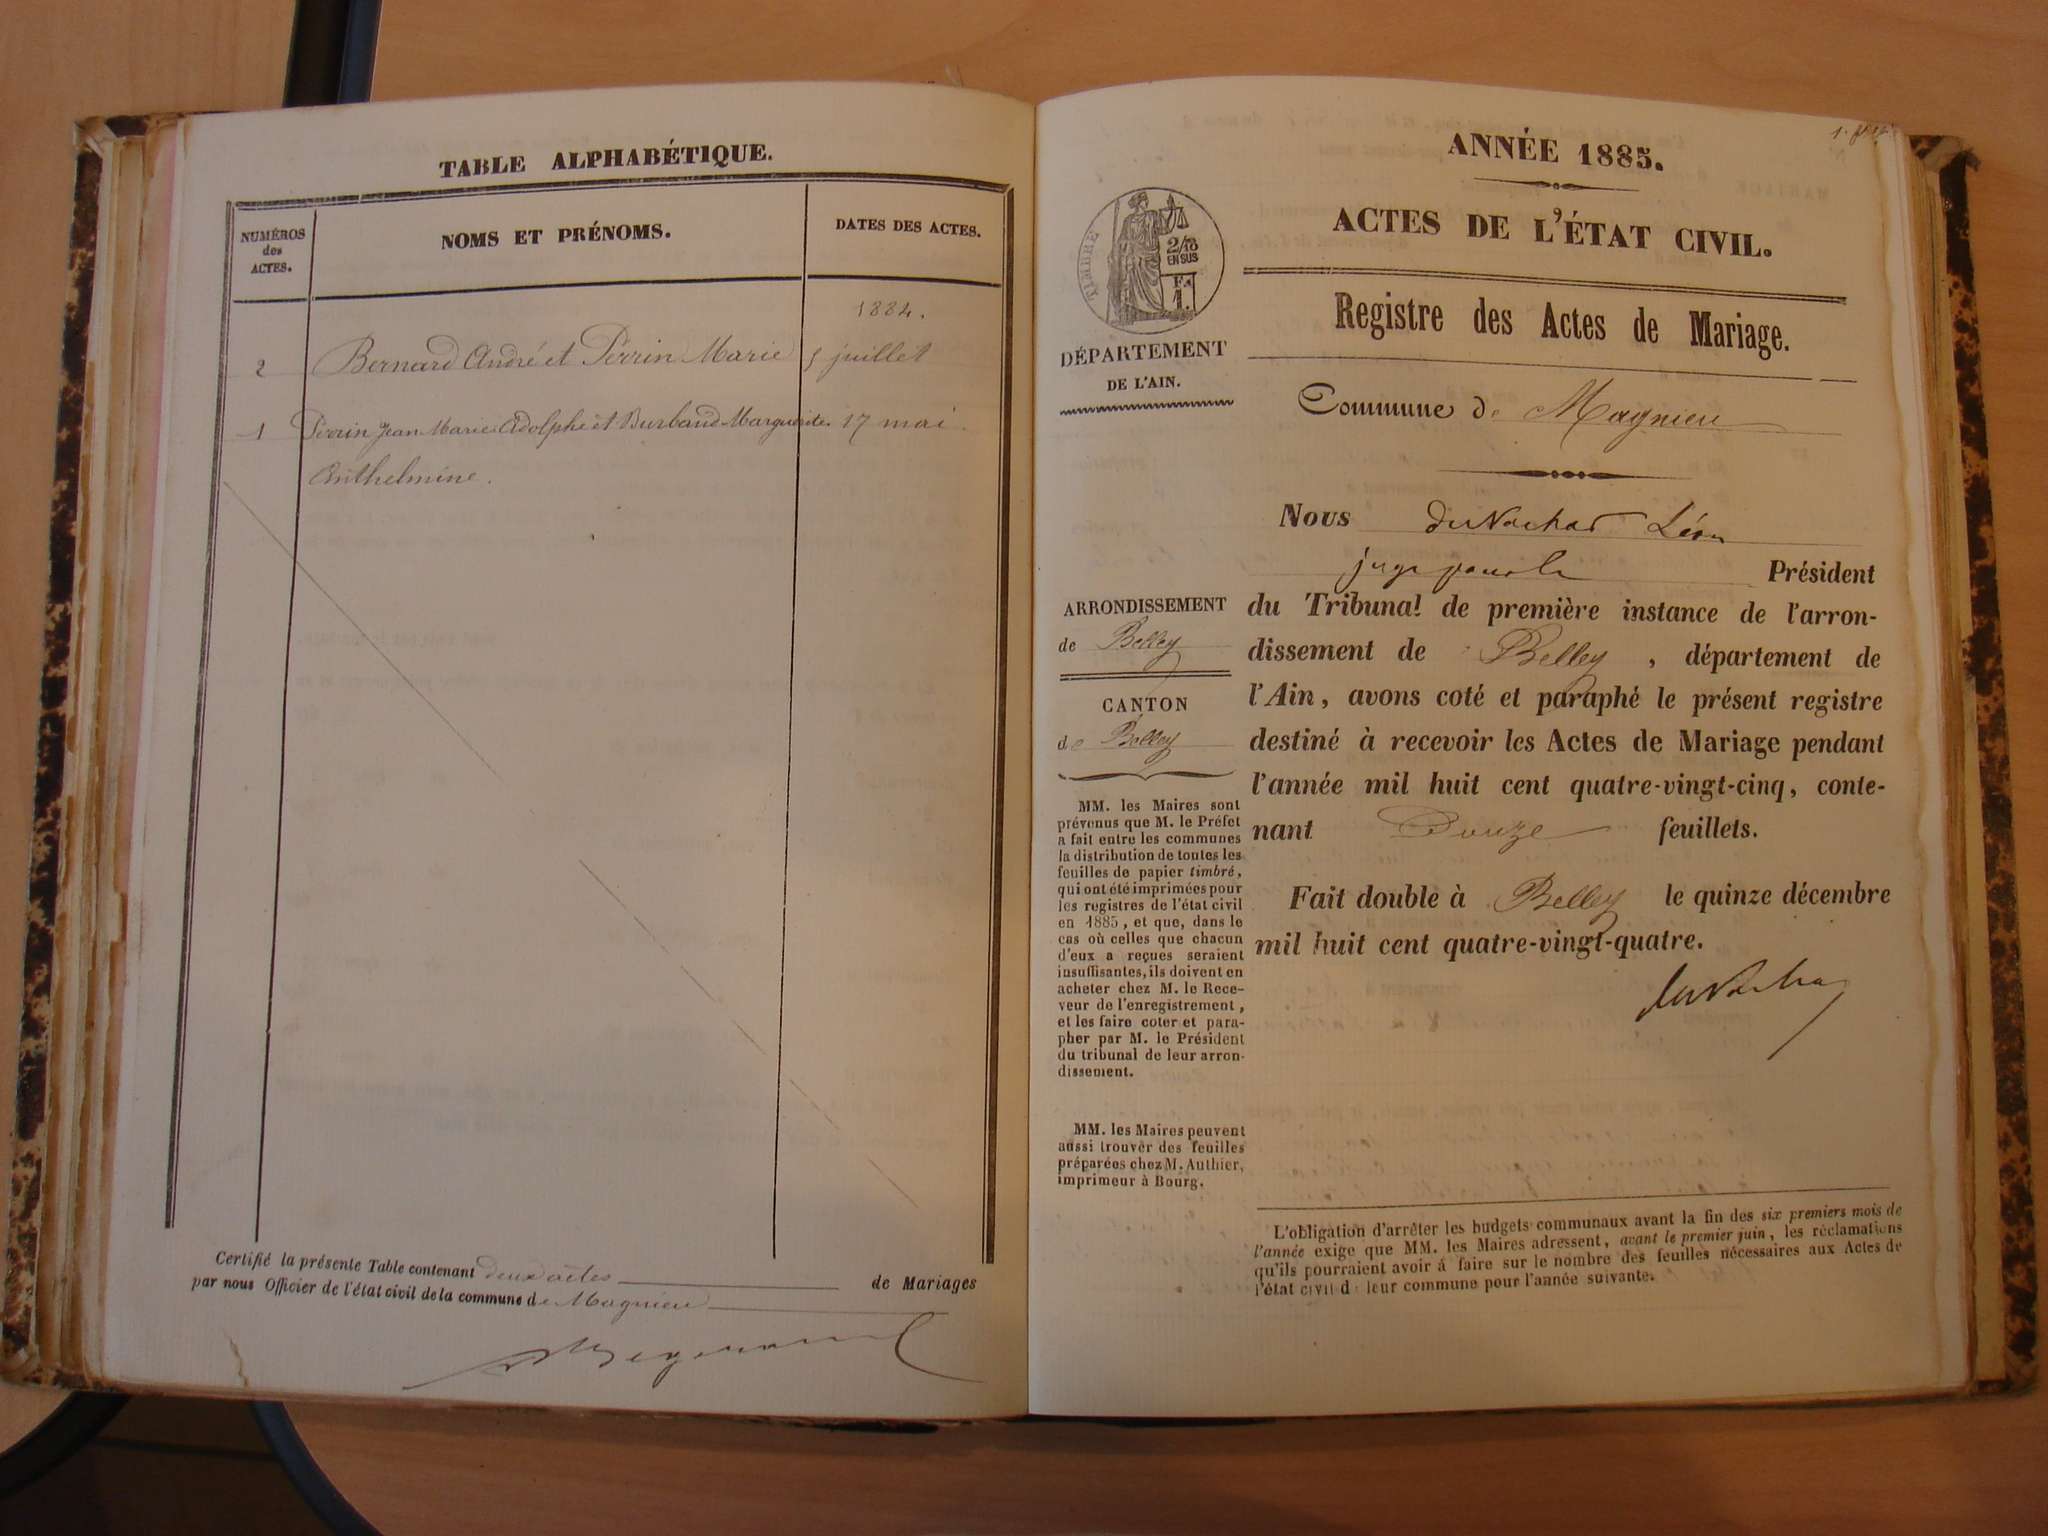 TABLE ALPHABÉTIQUE.
NUMÉROS
des
ACTES.
NOMS ET PRÉNOMS.
DATES DES ACTES.
1884.
2 Bernard André et Perrin Marie 5 juillet
1 Perrin Jean Marie Adolphe et Burbaud Marguerite 17 mai
Anthelmine.
Certifié la présente Table contenant deux actes de Mariages
par nous Officier de l'état civil de la commune de Magnieu
1.
ANNÉE 1885.
ACTES DE L'ÉTAT CIVIL.
TIMBRE
2/10
EN SUS
F.
1.
DÉPARTEMENT
DE L'AIN.
Registre des Actes de Mariage.
Commune de Magnieu
Nous Léon
juge pour le Président
du Tribunal de première instance de l'arron-
dissement de Belley, département de
l'Ain, avons coté et paraphé le présent registre
destiné à recevoir les Actes de Mariage pendant
l'année mil huit cent quatre-vingt-cinq, conte-
nant Douze feuillets.
Fait double à Belley le quinze décembre
mil huit cent quatre-vingt-quatre.
ARRONDISSEMENT
de Belley
CANTON
de Belley
MM. les Maires sont
prévenus que M. le Préfet
a fait entre les communes
la distribution de toutes les
feuilles de papier timbré,
qui ont été imprimées pour
les registres de l'état civil
en 1885, et que, dans le
cas où celles que chacun
d'eux a reçues seraient
insuffisantes, ils doivent en
acheter chez M. le Rece-
veur de l'enregistrement,
et les faire coter et para-
pher par M. le Président
du tribunal de leur arron-
dissement.
MM. les Maires peuvent
aussi trouver des feuilles
préparées chez M. Authier,
imprimeur à Bourg.
L'obligation d'arrêter les budgets communaux avant la fin des six premiers mois de
l'année exige que MM. les Maires adressent, avant le premier juin, les réclamations
qu'ils pourraient avoir à faire sur le nombre des feuilles nécessaires aux Actes de
l'état civil d leur commune pour l'année suivante.